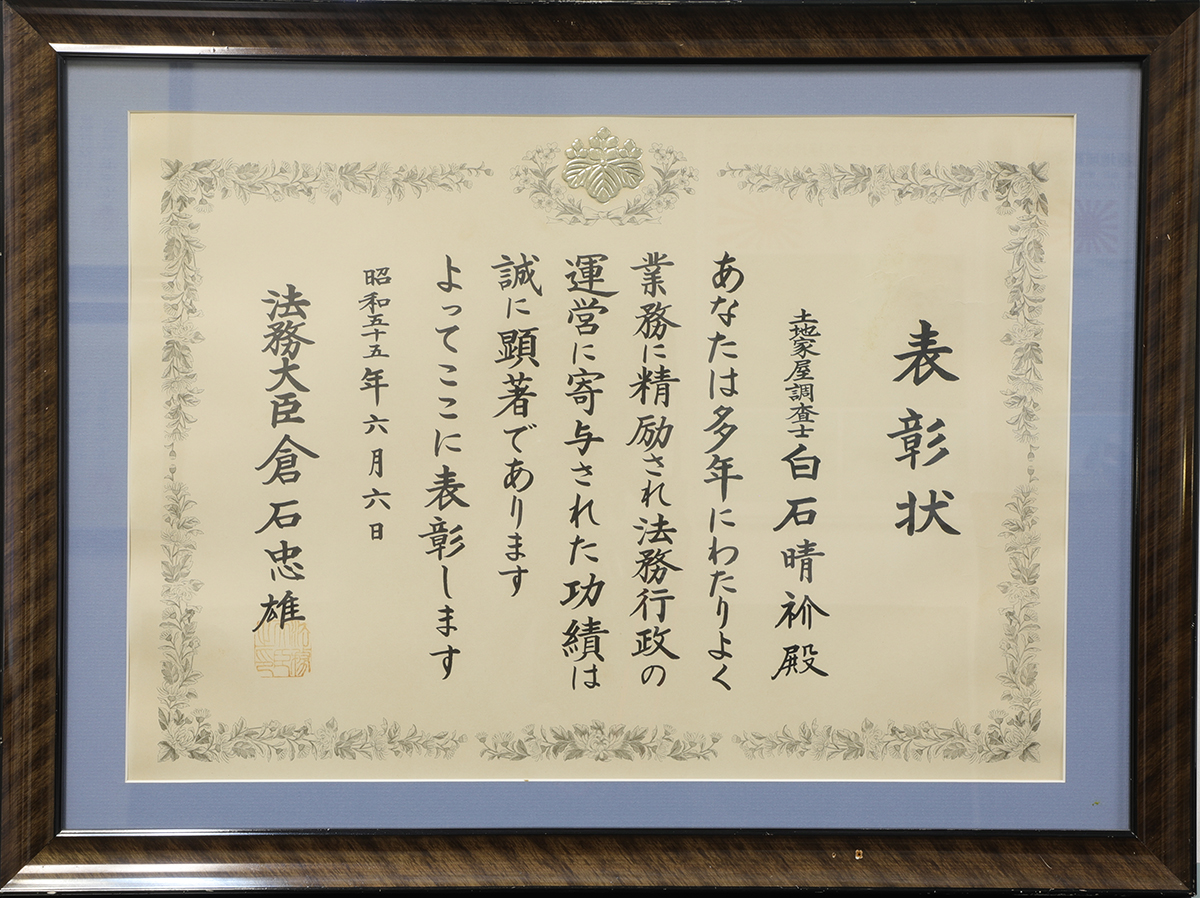 表彰状
土地家屋調査士 白石晴袮殿
あなたは多年にわたりよく
業務に精励され法務行政の
運営に寄与された功績は
誠に顕著であります
よってここに表彰します
昭和五十五年六月六日
法務大臣 倉石忠雄